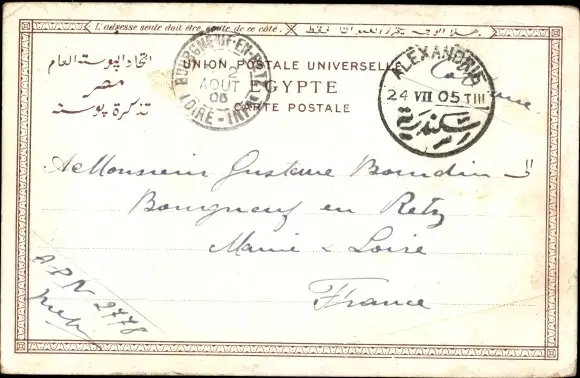 L'adresse seule doit être écrite de ce côté.
اتحاد البوستة العام
مصر
تذكرة بوستة
UNION POSTALE UNIVERSELLE
EGYPTE
CARTE POSTALE
BOURGNEUF-EN-RETZ
2
AOUT
05
LOIRE-INFRE
ALEXANDRIE
24 VII 05 TIII
اسكندرية
A Monsieur Gustave Bourdin
Bourgneuf en Retz
Maine & Loire
France
A.P.N 2778